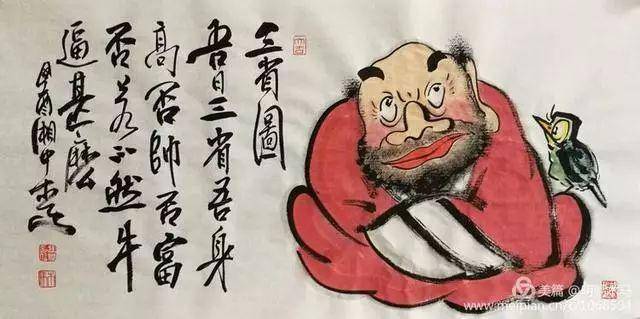 三省圖
吾日三省吾身
高否帥否富
否若不然牛
逼甚麽
酉湘中
美篇 @
www.meipian.cn/c/